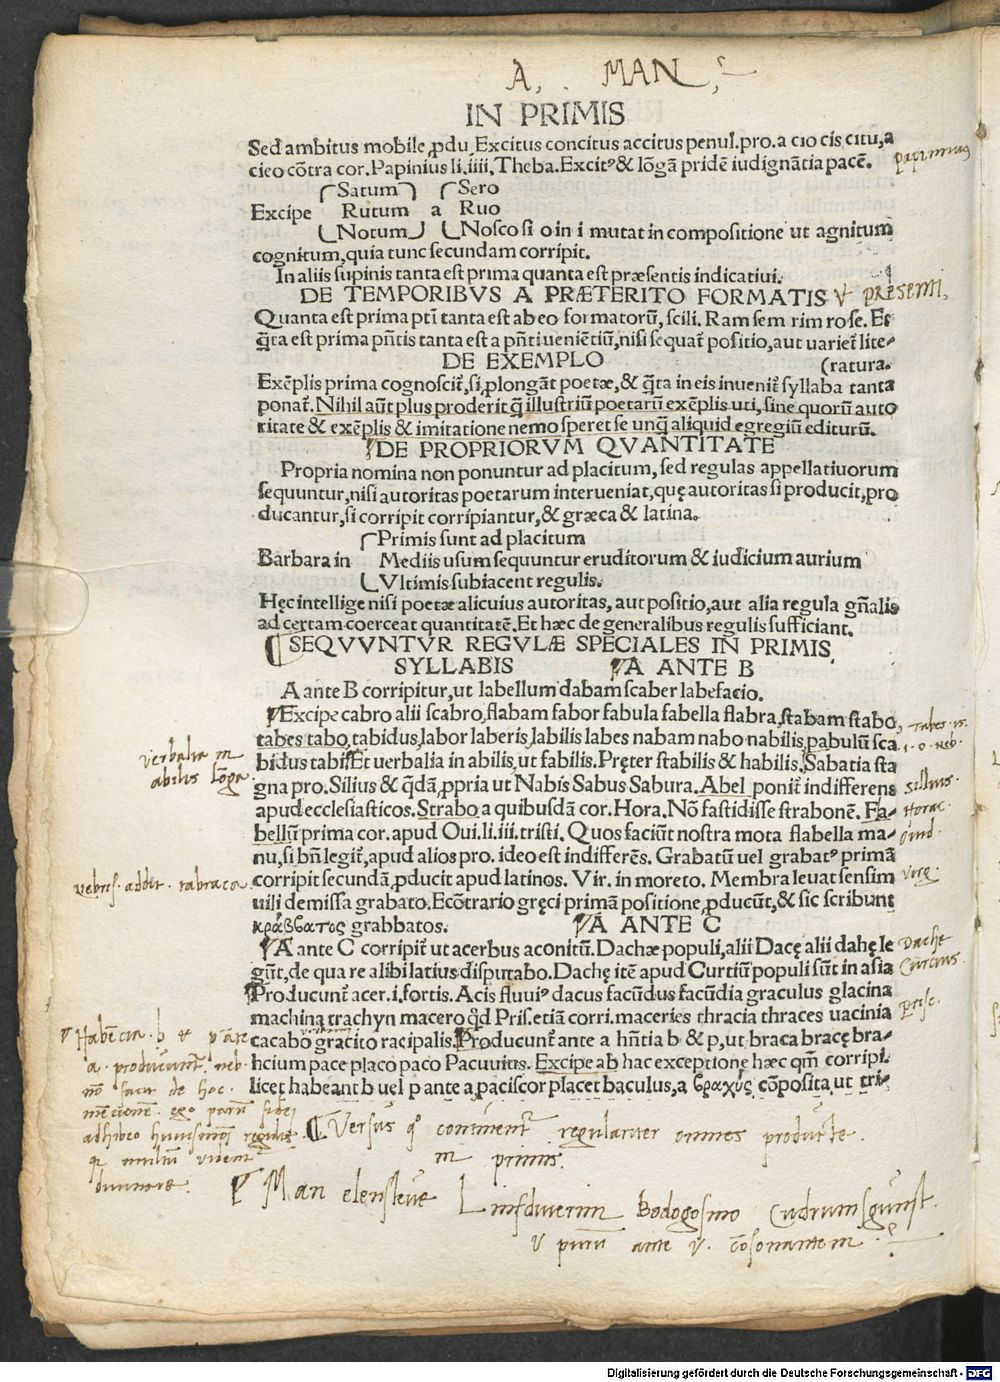 A, . MAN,
IN PRIMIS
Sed ambitus mobile, ꝓdu, Excitus concitus accitus penul. pro. a cio cis, citu, a
cieo cõtra cor. Papinius li. iiii. Theba. Excitꝰ & lõgã pridẽ iudignãtia pacẽ.
papinius
Satum Sero
Excipe Rutum a Ruo
Notum Nosco si o in i mutat in compositione ut agnitum
cognitum, quia tunc secundam corripit.
In aliis supinis tanta est prima quanta est præsentis indicatiui.
DE TEMPORIBVS A PRÆTERITO FORMATIS
PRESENTI,
Quanta est prima ptĩ tanta est ab eo formatorũ, scili. Ram sem rim ro se. Et
q̃ta est prima pñtis tanta est a pñti uenĩetiũ, nisi sequat̃ positio, aut uariet̃ lite-
DE EXEMPLO (ratura.
Exẽplis prima cognoscit̃, si, plongãt poetæ, & q̃ta in eis inuenit̃ syllaba tanta
ponat̃. Nihil aũt plus proderit q̃ illustriũ poetarũ exẽplis uti, sine quorũ auto
ritate & exẽplis & imitatione nemo speret se unq̃ aliquid egregiũ editurũ.
DE PROPRIORVM QVANTITATE
Propria nomina non ponuntur ad placitum, sed regulas appellatiuorum
sequuntur, nisi autoritas poetarum interueniat, quę autoritas si producit, pro
ducantur, si corripit corripiantur, & græca & latina.
Primis sunt ad placitum
Barbara in Mediis usum sequuntur eruditorum & iudicium aurium
Vltimis subiacent regulis.
Hęc intellige nisi poetæ alicuius autoritas, aut positio, aut alia regula gñalis
ad certam coerceat quantitatẽ. Et hæc de generalibus regulis sufficiant.
SEQVVNTVR REGVLÆ SPECIALES IN PRIMIS
SYLLABIS A ANTE B
A ante B corripitur, ut labellum dabam scaber labefacio.
Excipe cabro alii scabro, flabam fabor fabula fabella flabra, stabam stabo,
tabes tabo, tabidus, labor laberis, labilis labes nabam nabo nabilis, pabulũ sca
bidus tabi Et uerbalia in abilis, ut fabilis. Pręter stabilis & habilis. Sabatia sta
verbalia in
abilis lõga.
gna pro. Silius & q̃dã, ꝓpria ut Nabis Sabus Sabura. Abel ponit̃ indifferens
Sillius.
apud ecclesiasticos. Strabo a quibusdã cor. Hora. Nõ fastidisse strabonẽ. Fa-
Horac.
bellũ prima cor. apud Oui. li. iii. tristi. Quos faciũt nostra mota flabella ma-
Ouid.
nu, si bñ legit̃, apud alios pro. ideo est indifferẽs. Grabatũ uel grabatꝰ primã
corripit secundã, ꝓducit apud latinos. Vir. in moreto. Membra leuat sensim
Virg.
uili demissa grabato. Ecõtrario gręci primã positione, ꝓducũt, & sic scribunt
κράββατος grabbatos. A ANTE C
A ante C corripit̃ ut acerbus aconitũ. Dachæ populi, alii Dacę alii dahę le
Dachę
gũt, de qua re alibi latius disputabo. Dachę itẽ apud Curtiũ populi sũt in asia
Curtius.
Producunt̃ acer. i. fortis. Acis fluuiꝰ dacus facũdus facũdia graculus glacina
machina trachyn macero q̃d Pris. etiã corri. maceries thracia thraces uacinia
Prisc.
cacabo gracito racipalis. Producunt̃ ante a hñtia b & p, ut braca bracę bra-
hcium pace placo paco Pacuuius. Excipe ab hac exceptione hæc qm̃ corripi.
licet habeant b uel p ante a, paciscor placet baculus, a βραχύς cõposita, ut tri-
a. producunt̃. neb.
nõ facit de hoc.
mẽcionẽ. ego parũ fidei
adhibeo regulę.
Versus regulariter omnes producte.
in primis.
Man elensteue Linsduuerim Bodogosmo Cudrumsgunst.
V purũ ante v. cõsonantem
Digitalisierung gefördert durch die Deutsche Forschungsgemeinschaft - DFG